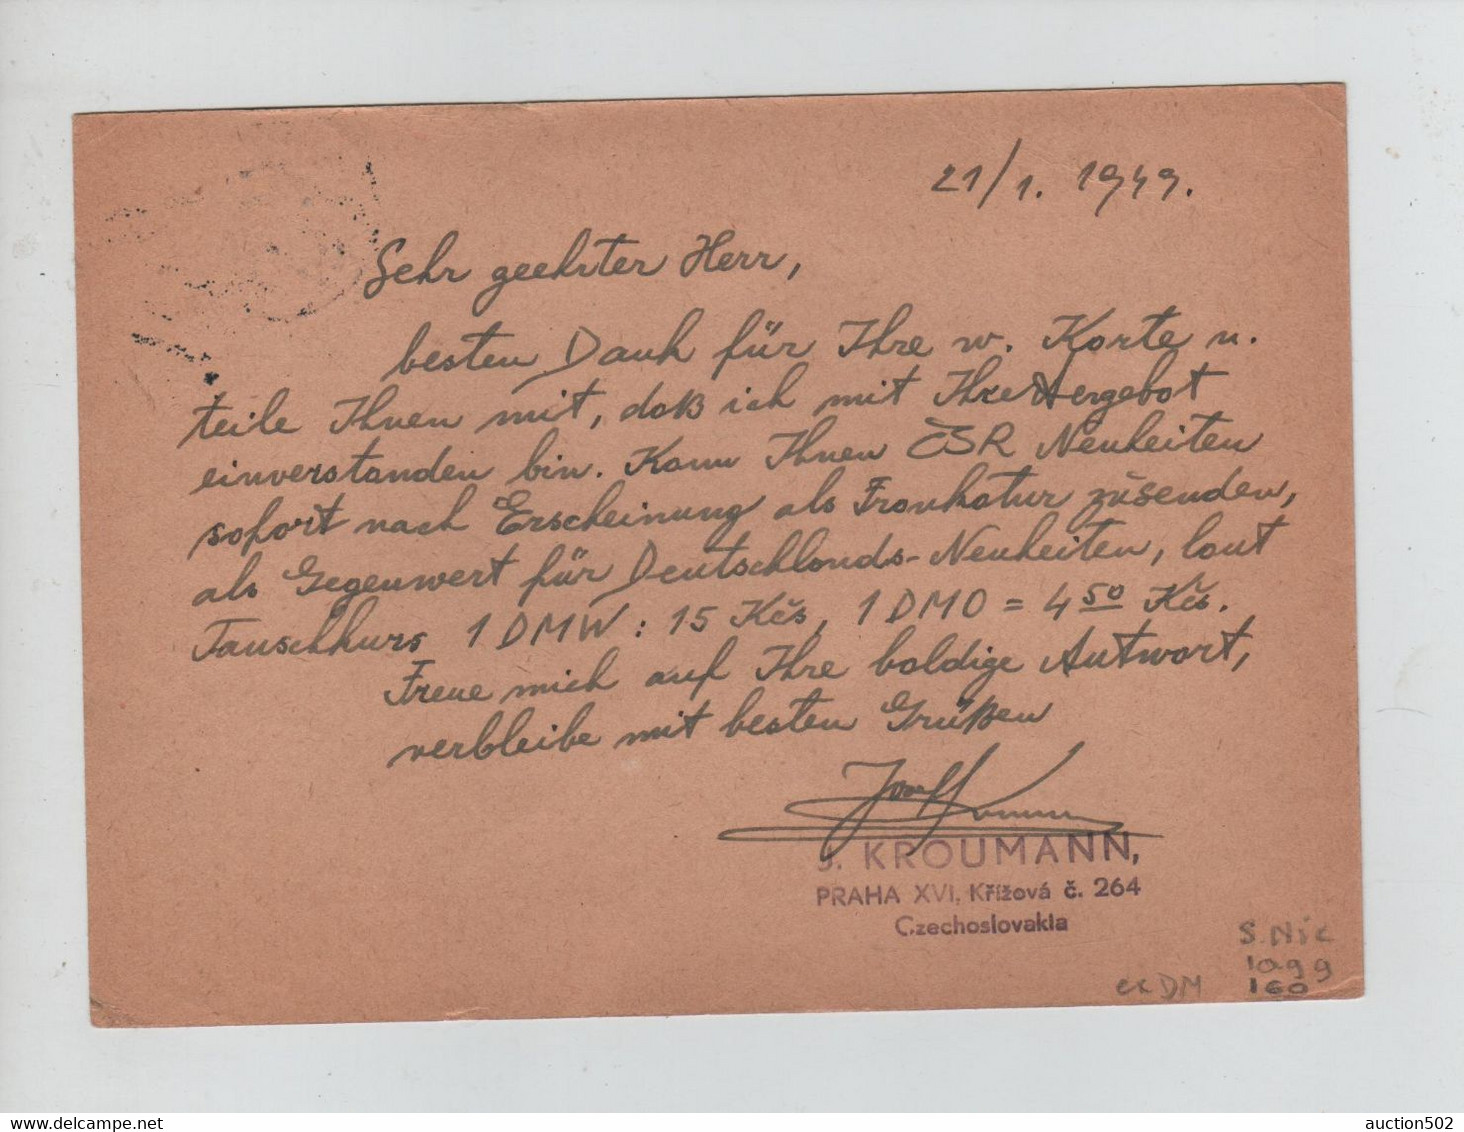 21/1. 1949.
Sehr geehrter Herr,
besten Dank für Ihre w. Karte u.
teile Ihnen mit, daß ich mit Ihre Angebot
einverstanden bin. Kann Ihnen ČSR Neuheiten
sofort nach Erscheinung als Frankatur zusenden,
als Gegenwert für Deutschlands-Neuheiten, laut
Tauschkurs 1 DMW : 15 Kčs, 1 DMO = 4 50 Kčs.
Freue mich auf Ihre baldige Antwort,
verbleibe mit besten Grüßen
J. KROUMANN,
PRAHA XVI, Křížová č. 264
Czechoslovakia
S. Nic
1099
ex DM 160
auction502